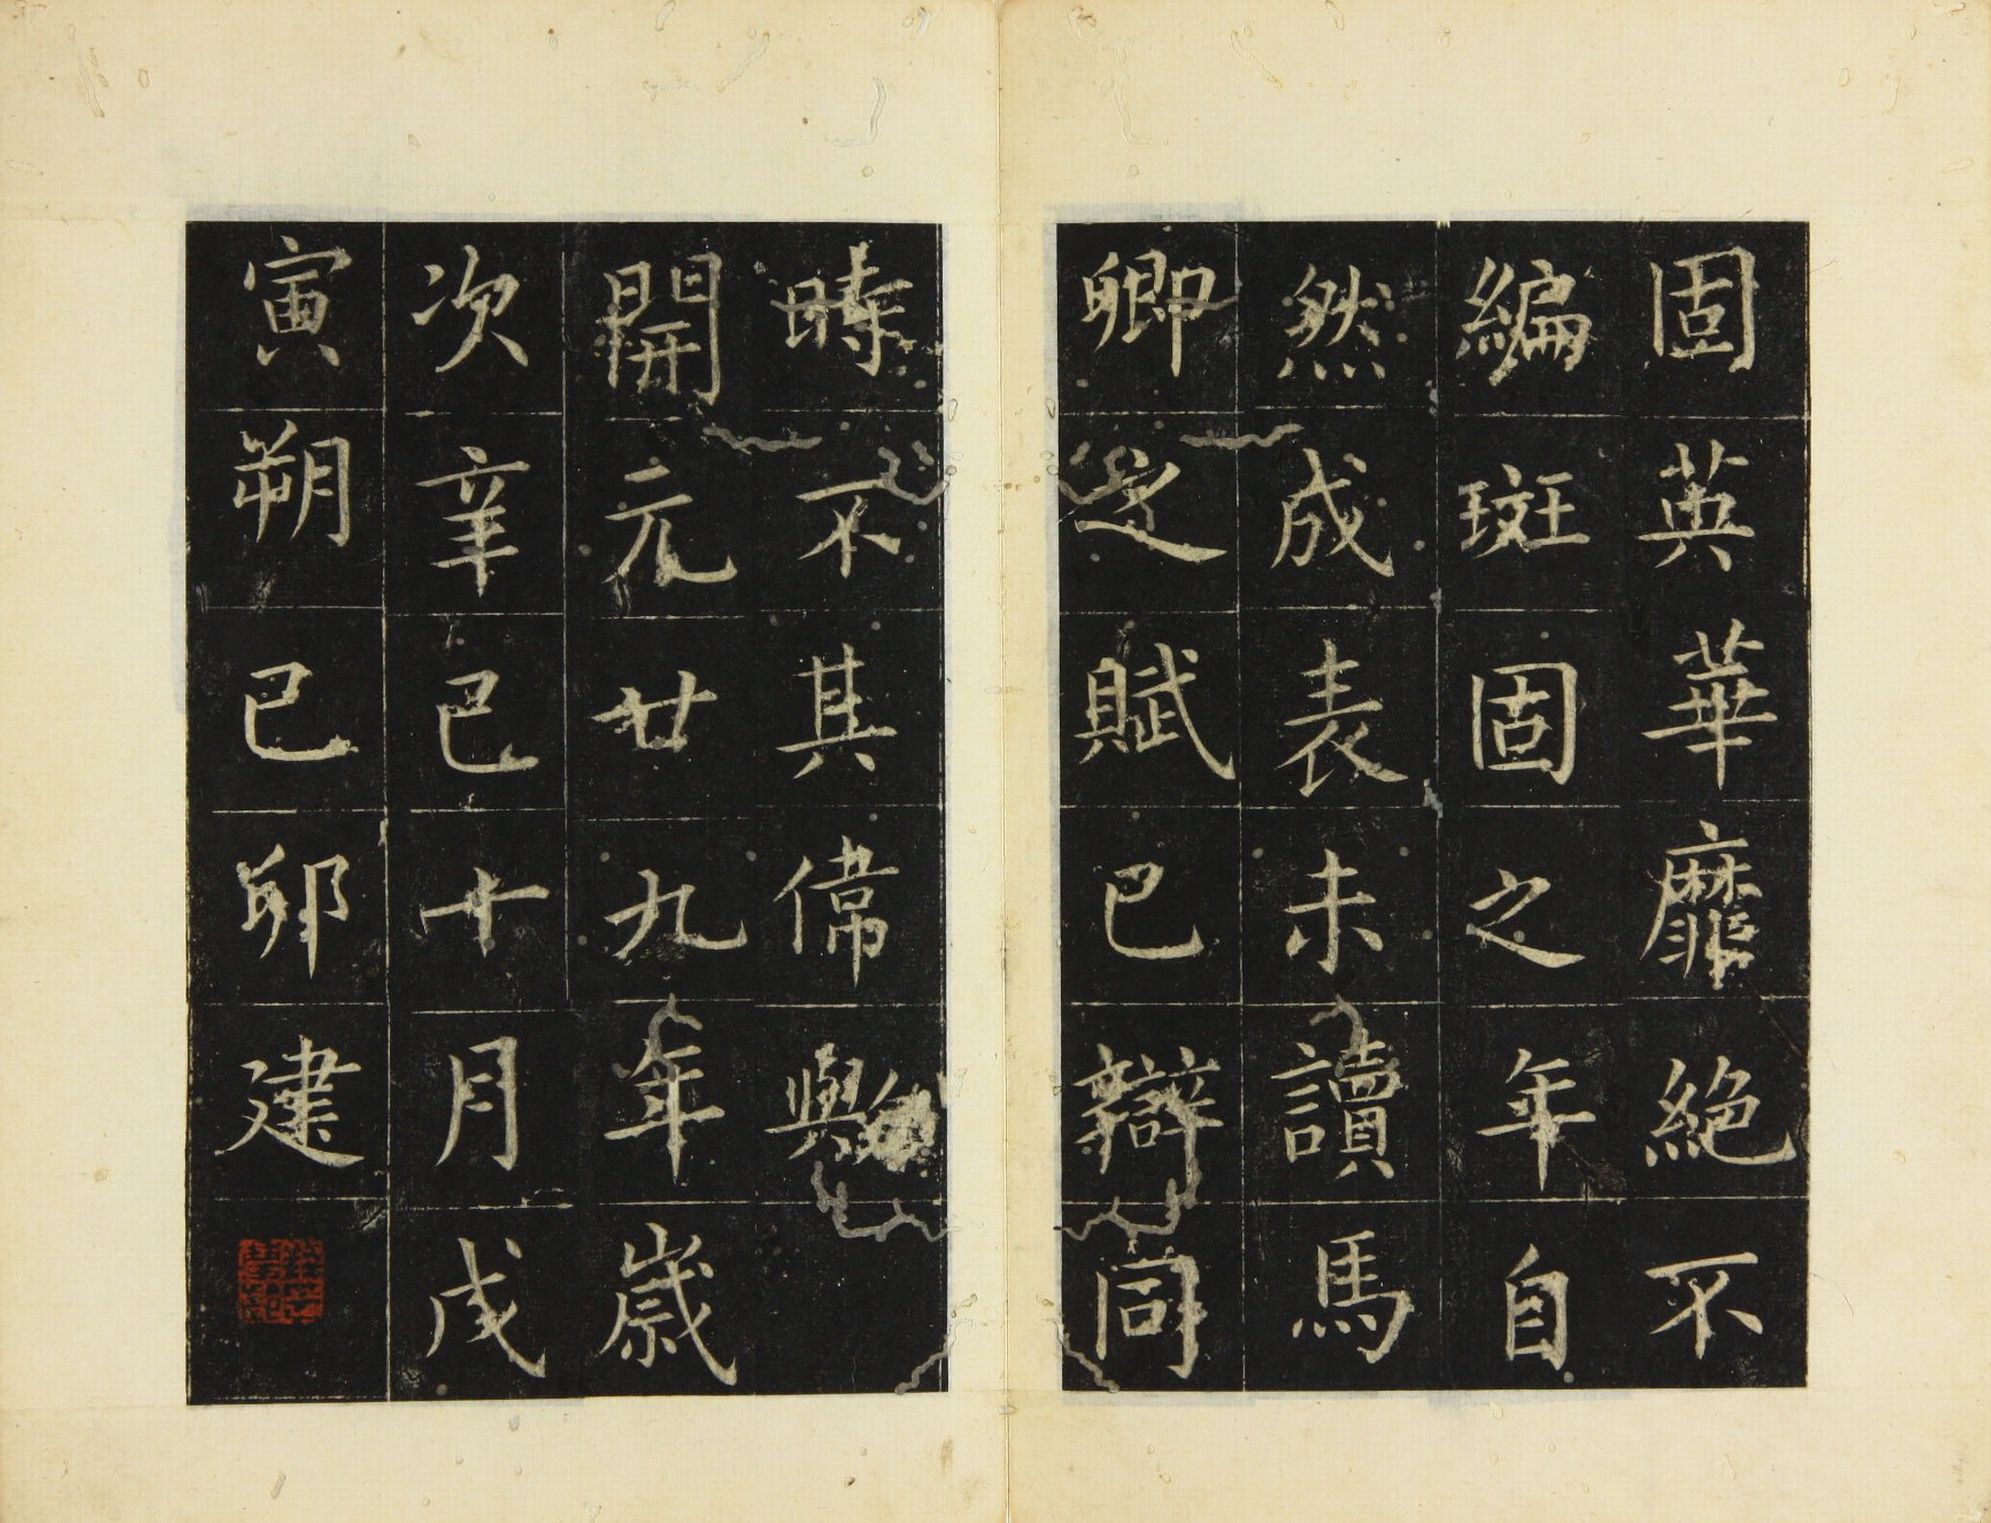 固英華靡絕不
編斑固之年自
然成表未讀馬
卿之賦已辯同
時不其偉歟
開元廿九年歲
次辛巳十月戊
寅朔己卯建